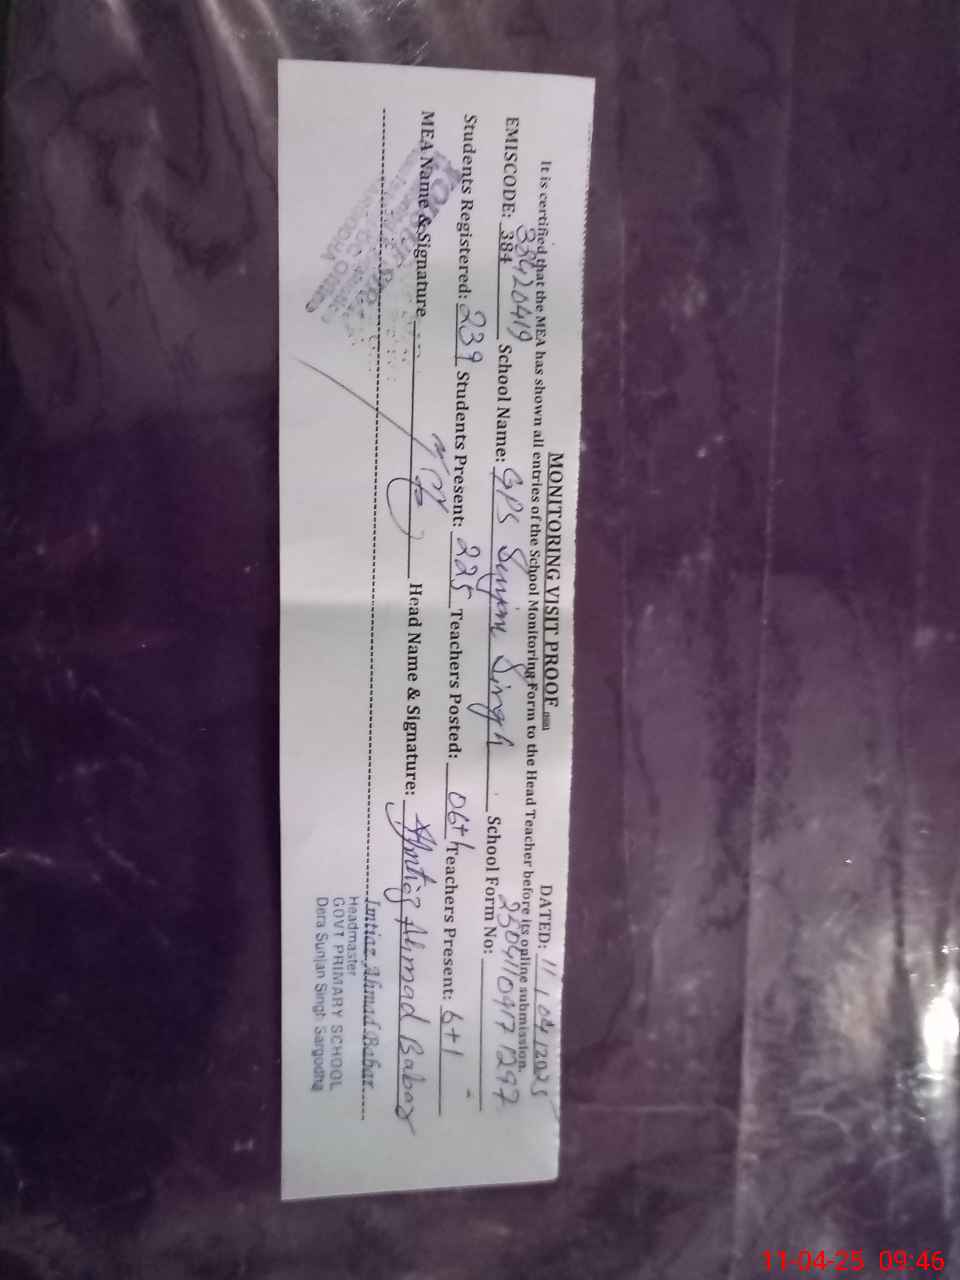 MONITORING VISIT PROOF
DATED: 11/04/2025
It is certified that the MEA has shown all entries of the School Monitoring Form to the Head Teacher before its online submission.
38420419 25041109171297
EMISCODE: 384 School Name: GPS Sujan Singh School Form No:
Students Registered: 239 Students Present: 225 Teachers Posted: 06+1 Teachers Present: 6+1
MEA Name & Signature Head Name & Signature: Imtiaz Ahmad Babar
Imtiaz Ahmad Babar
Headmaster
GOVT PRIMARY SCHOOL
Dera Sunjan Singh Sargodha
11-04-25 09:46